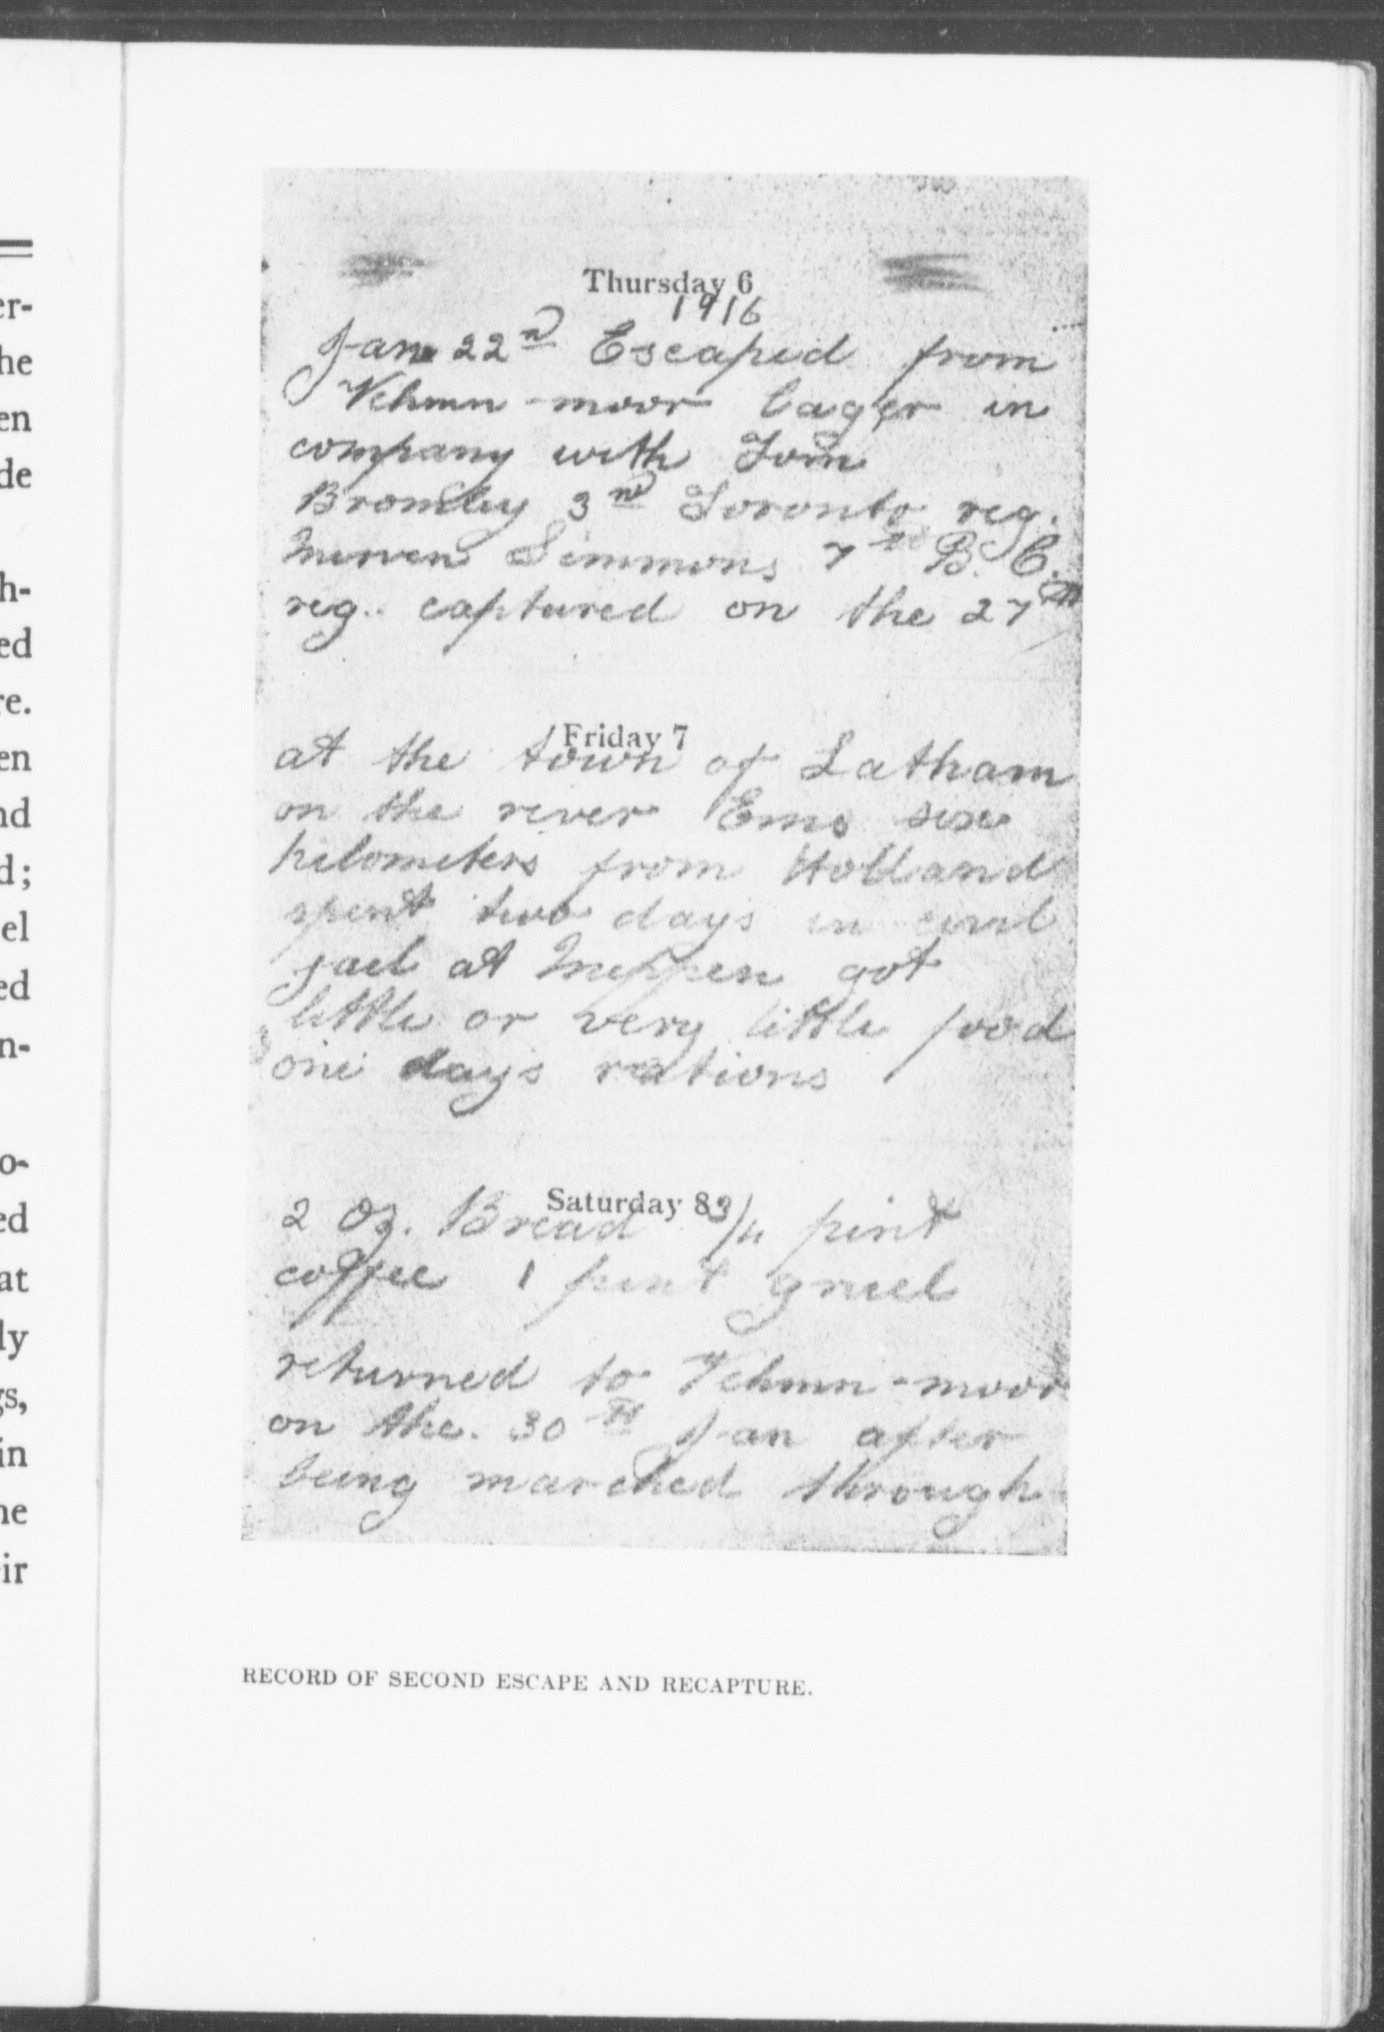 er-
he
en
de
h-
ed
re.
en
nd
d;
el
ed
n-
o-
ed
at
ly
gs,
in
he
ir
Thursday 6
1916
Jan 22nd Escaped from
Vehmn-moor lager in
company with Tom
Bromley 3rd Toronto reg.
Merven Simmons 7th B.C.
reg. captured on the 27th
Friday 7
at the town of Latham
on the river Ems six
kilometers from Holland
spent two days in civil
jael at Meppen got
little or very little food
one days rations
Saturday 8
2 Oz. Bread 3/4 pint
coffee 1 pint gruel
returned to Vehmn-moor
on the. 30th Jan after
being marched through
RECORD OF SECOND ESCAPE AND RECAPTURE.